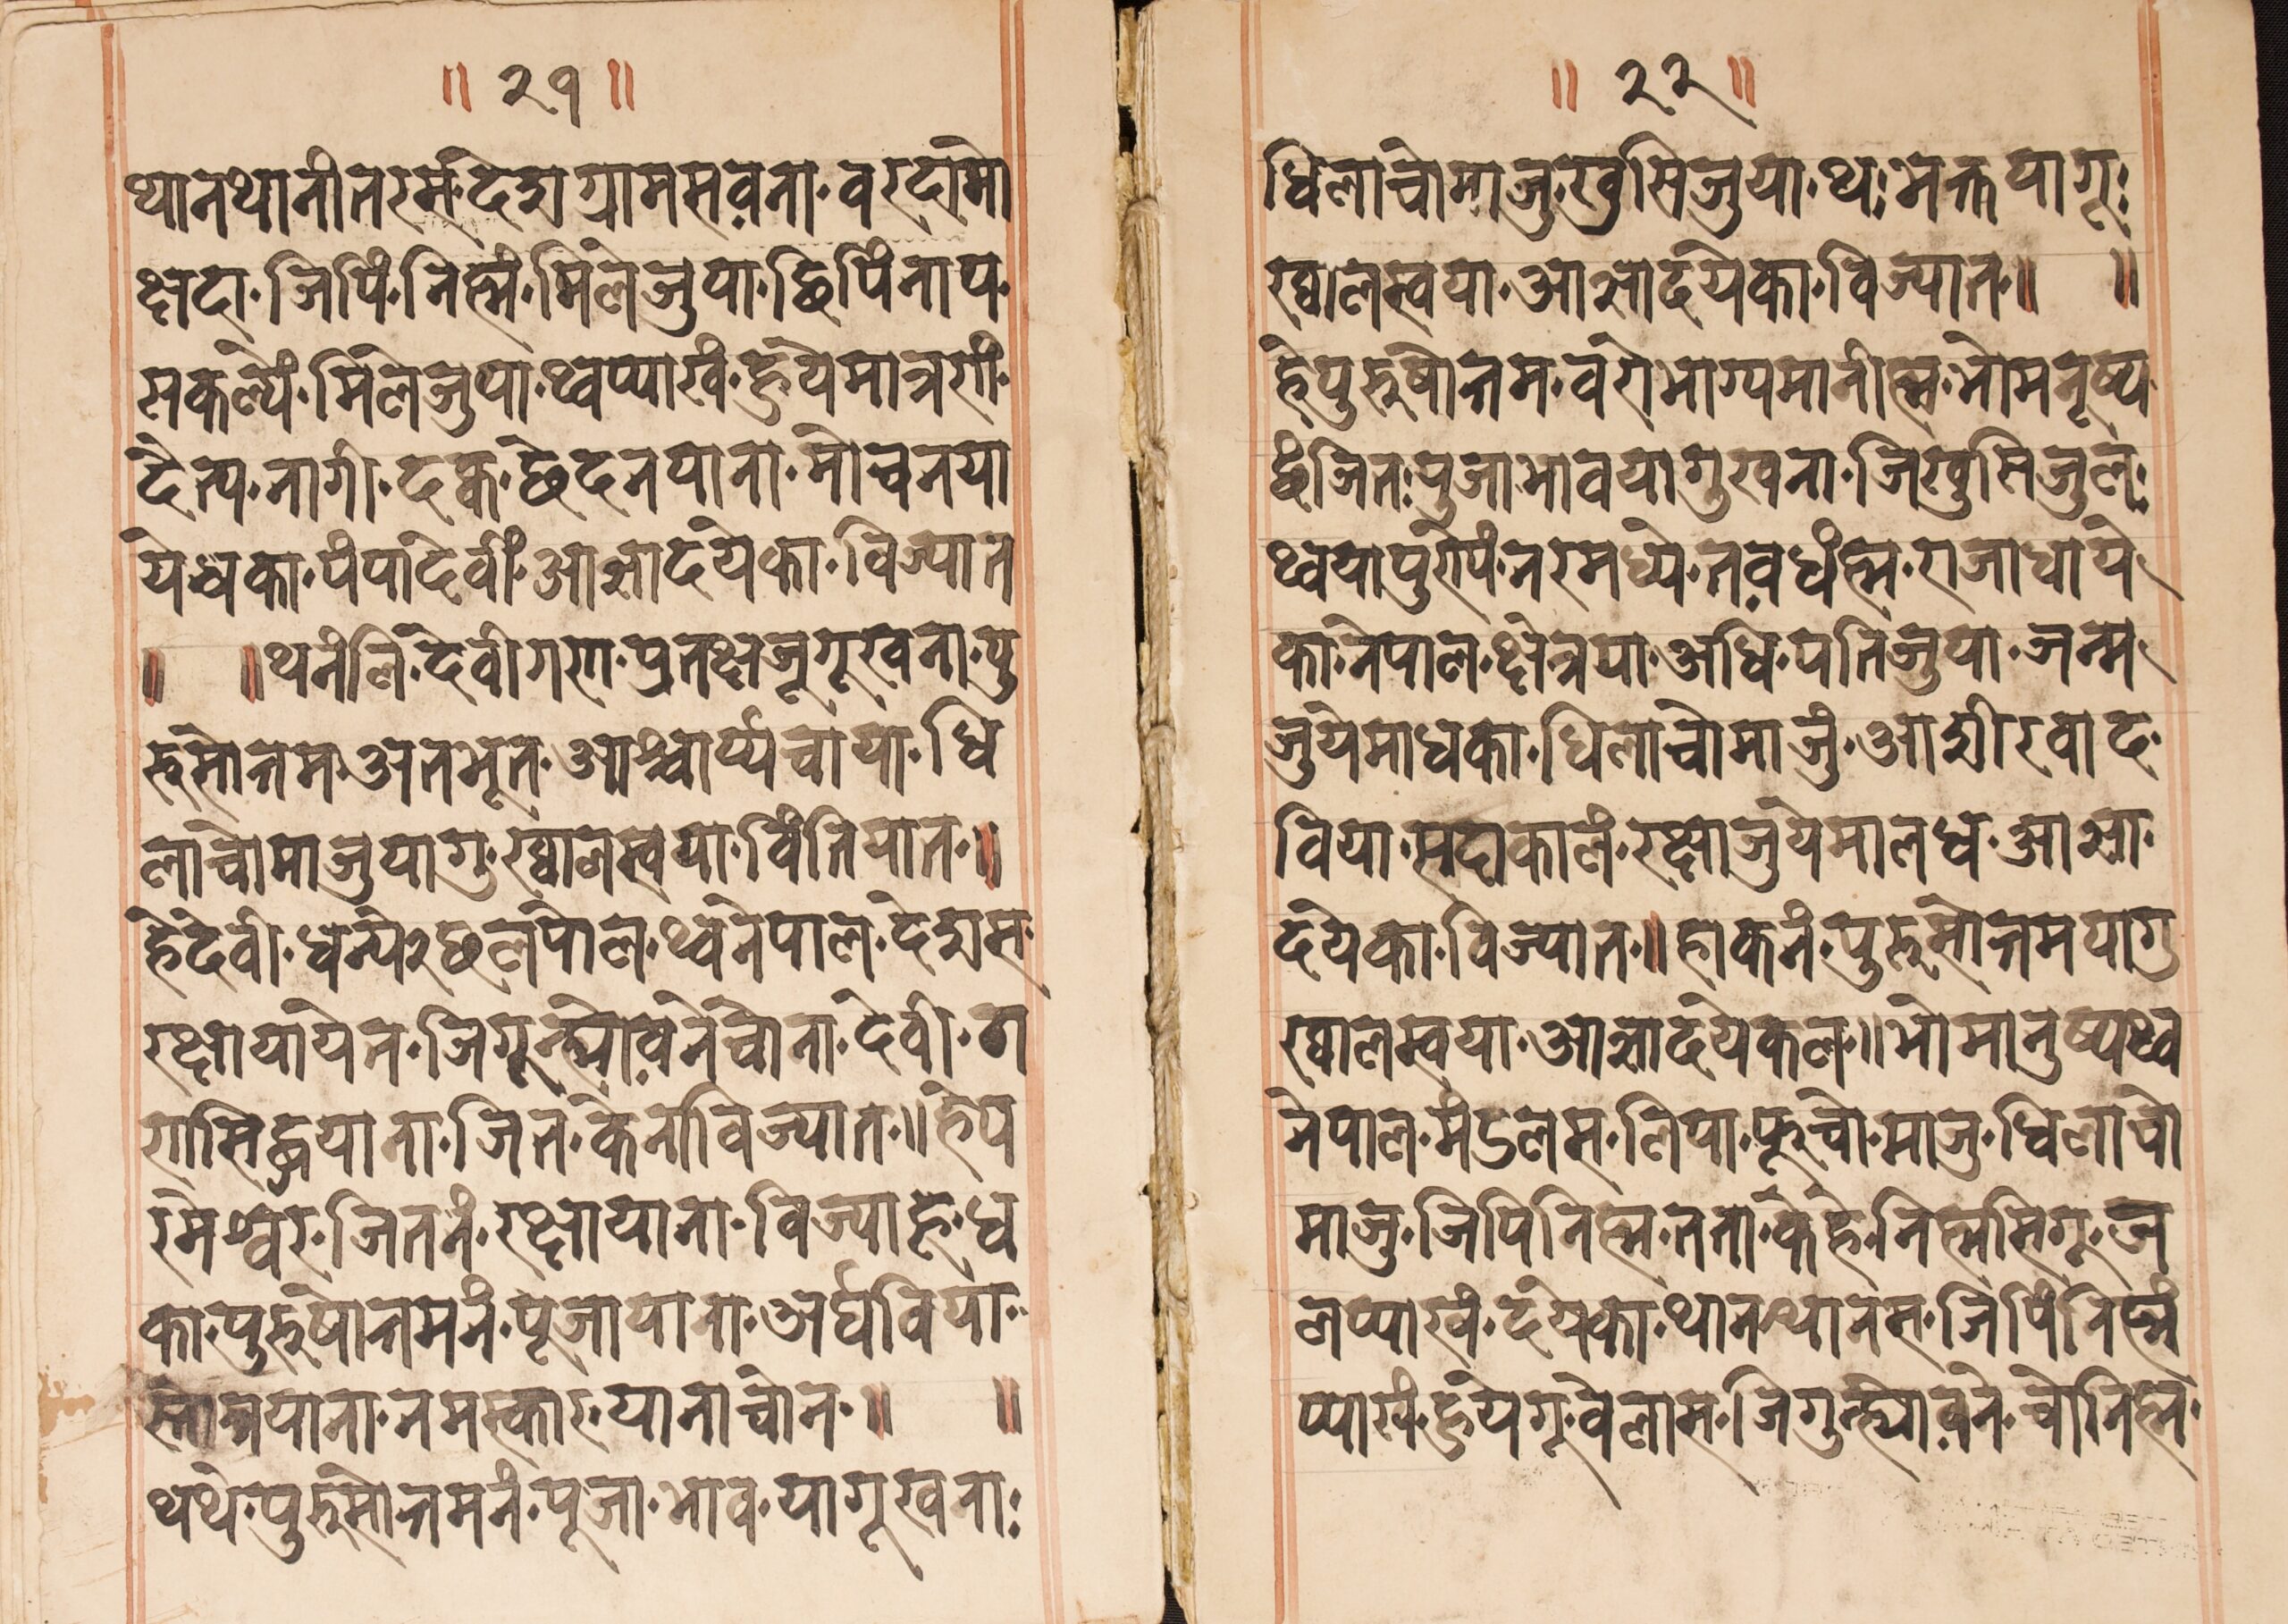 ॥ २१ ॥
थानथानीतरसं·देशग्रामसव़ना·वरदामो
क्षदा·जिपिं·निह्मं·मिलेजुया·छिपिंनाप·
सकल्यें·मिलेजुया·थ्वप्याखं·हुयेमात्ररां·
दैत्य·नागी·दक्व·छेदनयाना·मोचनया
येधका·पंपादेवीं·आज्ञादयेका·विज्यात
॥ ॥थनंलि·देवीगरा·प्रतक्षजूगूखना·पु
रुसोत्तम·अतभूत·आश्चार्य्यचाया·धि
लाचोमाजुयागु·ख्वालस्वया·विंतियात·॥
हेदेवी·धन्ये२छलपोल·थ्वनेपाल·देशस·
रक्षायायेत·जिगूत्ह्योव़नेचोना·देवी·ग
रासिद्धयाना·जित·केनाविज्यात·॥हेप
रमेश्वर·जितनं·रक्षायाना·विज्याहु·ध
का·पुरुषोत्तमनं·पूजायाना·अर्घविया·
स्तोत्रयाना·नमस्कारयानाचोन·॥ ॥
थथे·पुरुसोत्तमनं·पूजा·भाव·यागूखना:
॥ २२ ॥
धिलाचोमाजु·खुसिजुया·थ:भक्तयागू:
ख्वालस्वया·आज्ञादयेका·विज्यात·॥ ॥
हेपुरुषोत्तम·वरोभाग्यमानीह्म·भोमनूष्य
छंजित:पुजाभावयागुखना·जिखुसिजुल:
थ्वयापुरोयं·नरमध्ये·तव़धंह्म·राजाधाये
का·नेपाल·क्षेत्रया·अधि·पतिजुया·जन्म
जुयेमाधका·धिलाचोमाजुं·आशीरवाद·
विया·सदाकालं·रक्षाजुयेमालधु·आज्ञा·
दयेका·विज्यात·॥हाकनं·पुरुसोत्तमयागु
ख्वालस्वया·आज्ञादयेकल·॥भोमानुष्यथ्व
नेपाल·मंडलस·लिपा·फूचो·माजु·धिलाचो
माजु·जिपिनिह्म·तता·केहे·निह्मसिगू·ज
लप्याखं·दयेका·थानथानस·जिपिंनिह्मं
प्याखं·हुयेगू·वेलास·जिगुत्ह्योव़ने·चोनिह्म·